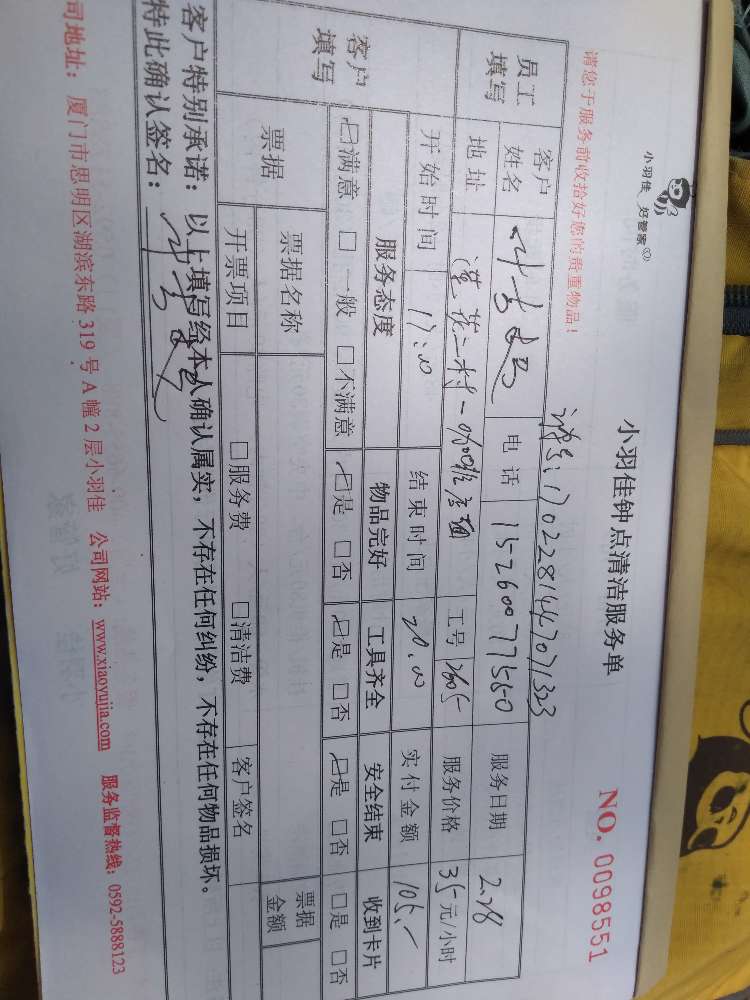 小羽佳 好管家
小羽佳钟点清洁服务单
NO. 0098551
请您于服务前收拾好您的贵重物品！
1702281447071323
员工填写 客户姓名 电话 15260077580 服务日期 2.28
地址 一 工号 2605 服务价格 35元/小时
客户填写 开始时间 17:00 结束时间 20.00 实付金额 105.-
服务态度 物品完好 工具齐全 安全结束 收到卡片
☑满意 □一般 □不满意 ☑是 □否 ☑是 □否 ☑是 □否 □是 □否
票据 票据名称 票据金额
开票项目 □服务费 □清洁费 客户签名
客户特别承诺：以上填写经本人确认属实，不存在任何纠纷，不存在任何物品损坏。
特此确认签名：
司地址：厦门市思明区湖滨东路 319 号 A 幢 2 层小羽佳 公司网站：www.xiaoyujia.com 服务监督热线：0592-5888123